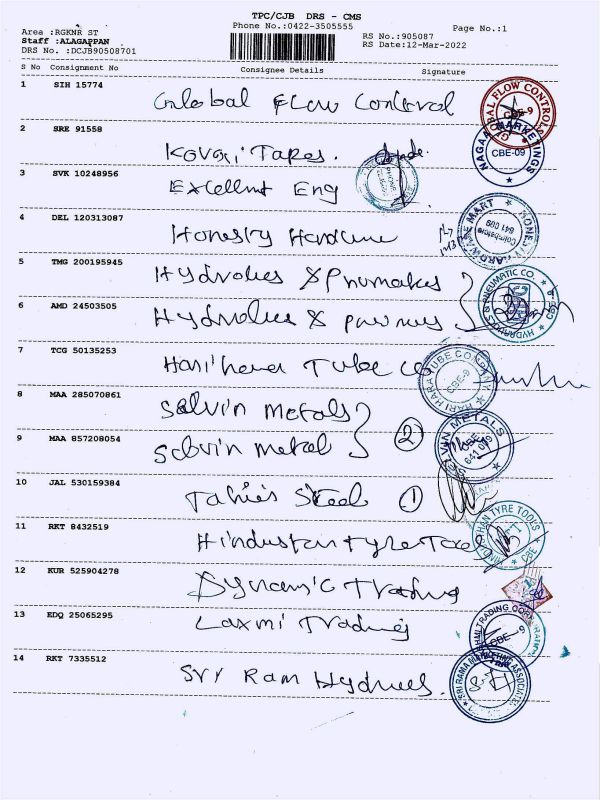 TPC/CJB DRS - CMS
Phone No.:0422-3505555
Page No.:1
Area :RGKNR ST
Staff :ALAGAPPAN
DRS No. :DCJB90508701
RS No.:905087
RS Date:12-Mar-2022
S No Consignment No Consignee Details Signature
1 SIH 15774 Global Flow Control
GLOBAL FLOW CONTROLS CBE-9
2 SRE 91558 Kovai Tapes.
MARKETINGS CBE-09
3 SVK 10248956 Excellent Eng
4 DEL 120313087 Honesty Hardware
HONEST HARDWARE MART Coimbatore 641 009
5 TMG 200195945 Hydrolies & Pnumakes
6 AMD 24503505 Hydrolies &
HYDRAULICS & PNEUMATIC CO. CBE-9
7 TCG 50135253 Harihara Tube Co
HARI HARA TUBE COMPANY CBE-9
8 MAA 285070861 Selvin Metals
9 MAA 857208054 Selvin metal 2
SELVIN METALS 641 009
10 JAL 530159384 Steel 1
11 RKT 8432519 Hindustan tyre Tools
HINDUSTHAN TYRE TOOLS CBE
12 KUR 525904278 Dynamic Trading
13 EDQ 25065295 Laxmi Trading
TRADING CORPORATION CBE-9
14 RKT 7335512 Sri Ram Hydraues.
SRI RAMA ASSOCIATES